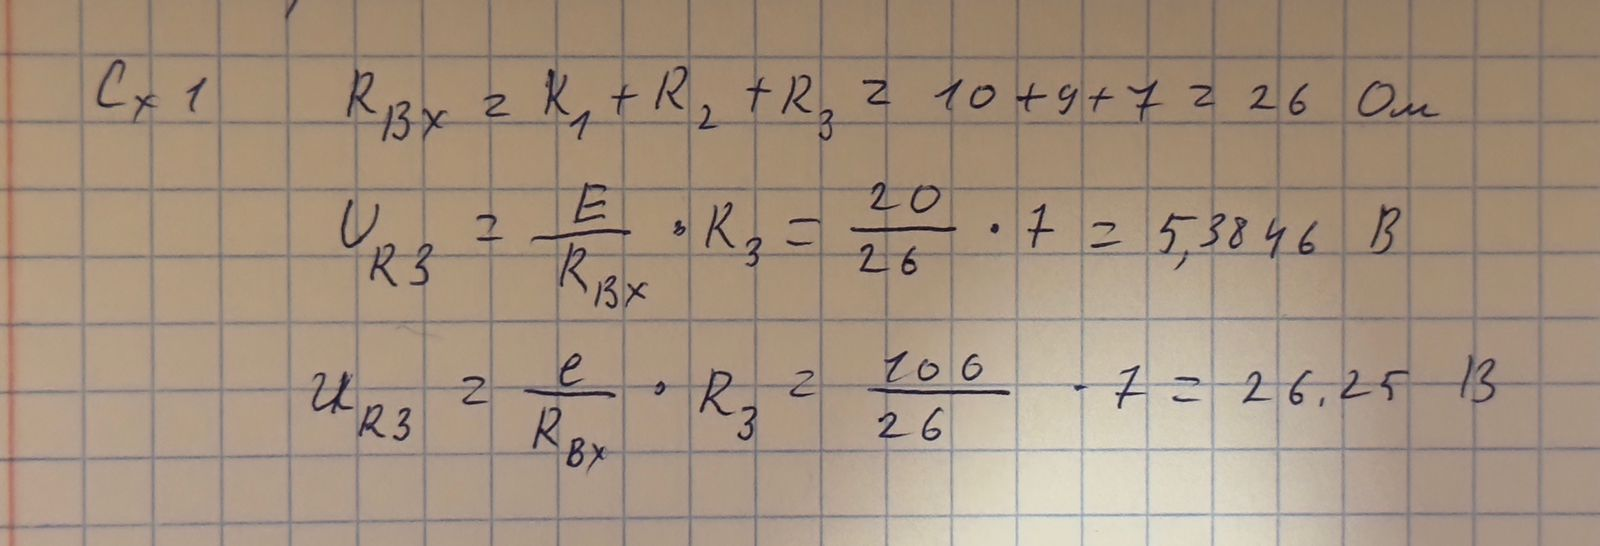 Сх 1 R_вх = R_1 + R_2 + R_3 = 10 + 9 + 7 = 26 Ом
U_R3 = E / R_вх · R_3 = 20 / 26 · 7 = 5,3846 В
u_R3 = e / R_вх · R_3 = 100 / 26 · 7 = 26.25 В